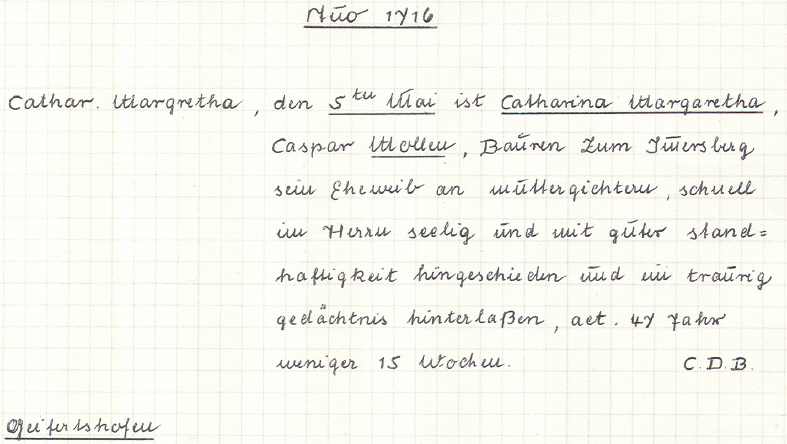 Año 1716
Cathar. Margretha, den 5ten Mai ist Catharina Margaretha,
Caspar Mollen, Baüren zum Im̄ersberg
sein Eheweib an müttergichtern, schnell
im Herrn seelig ünd mit güter stand=
haftigkeit hingeschieden ünd im traürig
gedächtnis hinterlaßen, aet. 47 Jahr
weniger 15 Wochen. C.D.B.
Geifertshofen